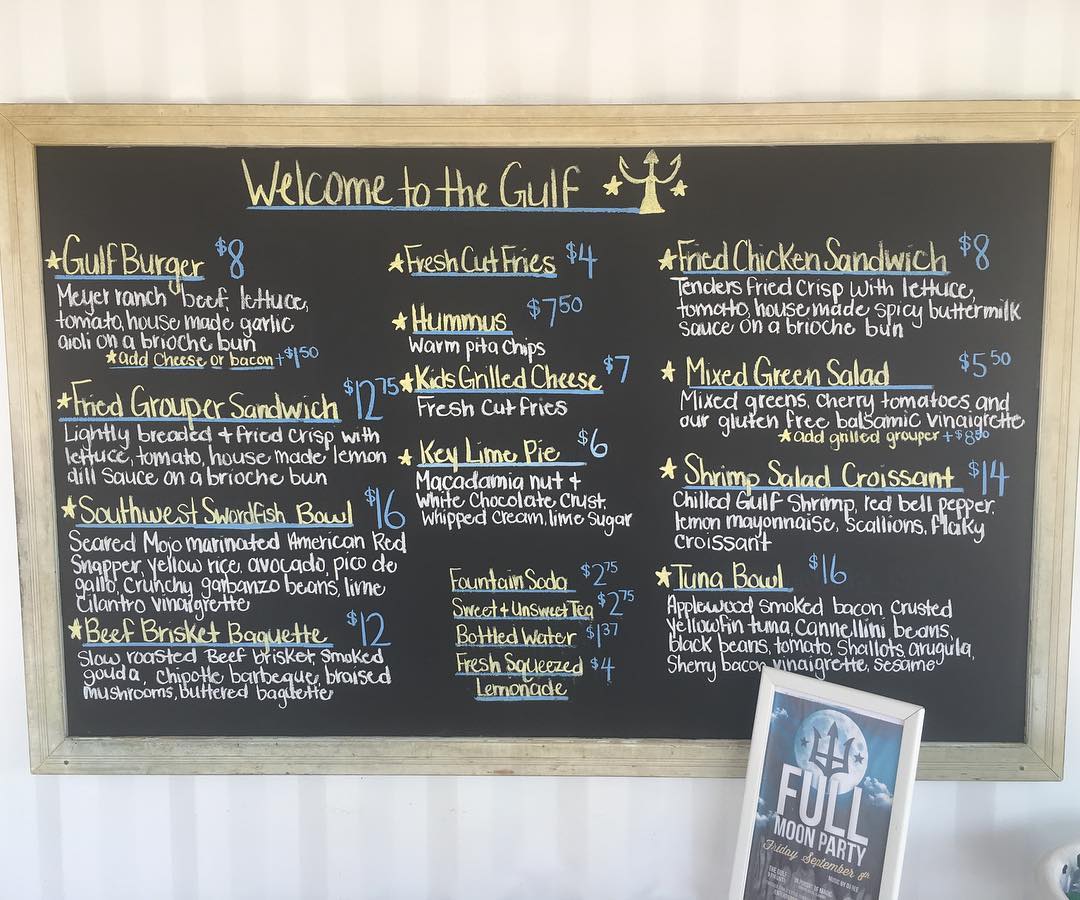 Welcome to the Gulf
Gulf Burger $8
Meyer ranch beef, lettuce,
tomato, house made garlic
aioli on a brioche bun
add cheese or bacon +$1.50
Fried Grouper Sandwich $12.75
Lightly breaded + fried crisp with
lettuce, tomato, house made lemon
dill sauce on a brioche bun
Southwest Swordfish Bowl $16
Seared Mojo marinated American Red
Snapper, yellow rice, avocado, pico de
gallo, crunchy garbanzo beans, lime
cilantro vinaigrette
Beef Brisket Baguette $12
Slow roasted Beef brisket, smoked
gouda, chipotle barbeque, braised
mushrooms, buttered baguette
Fresh Cut Fries $4
Hummus $7.50
Warm pita chips
Kids Grilled Cheese $7
Fresh cut fries
Key Lime Pie $6
Macadamia nut +
White Chocolate Crust,
Whipped cream, lime sugar
Fountain Soda $2.75
Sweet + Unsweet Tea $2.75
Bottled Water $1.37
Fresh Squeezed $4
Lemonade
Fried Chicken Sandwich $8
Tenders fried crisp with lettuce,
tomatto, house made spicy buttermilk
sauce on a brioche bun
Mixed Green Salad $5.50
Mixed greens, cherry tomatoes and
our gluten free balsamic vinaigrette
add grilled grouper +$8.50
Shrimp Salad Croissant $14
Chilled Gulf Shrimp, red bell pepper,
lemon mayonnaise, scallions, flaky
croissant
Tuna Bowl $16
Applewood smoked bacon crusted
yellowfin tuna, cannellini beans,
black beans, tomato, shallots arugula,
Sherry bacon vinaigrette, sesame
FULL
MOON PARTY
Friday September 8th